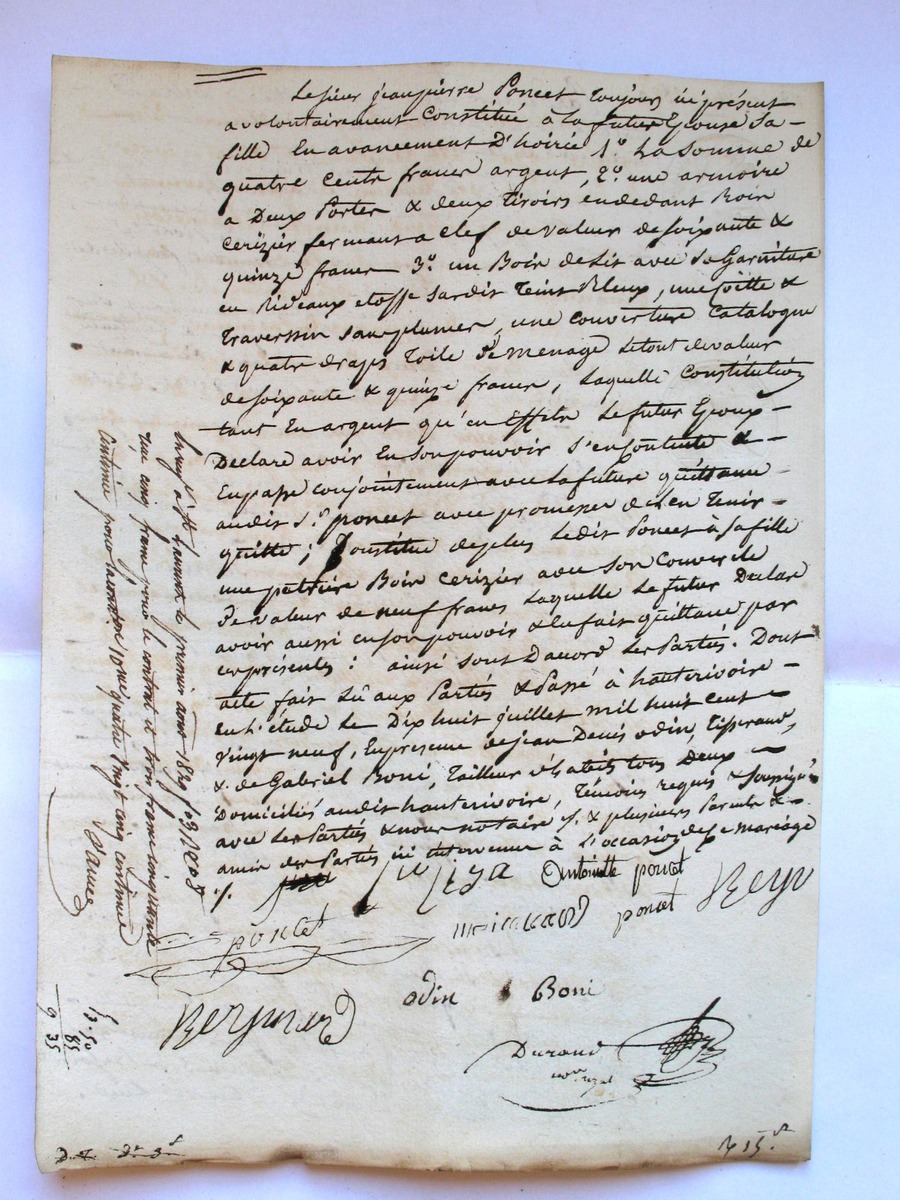 Le sieur jean pierre Poncet toujours ici présent
a volontairement Constitué à La future Epouse Sa-
fille En avancement D'hoirie 1.° La Somme de
quatre cents francs argent, 2.° une armoire
a Deux Portes & deux tiroirs endedant Bois
Cerizier fermant a clef de valeur de soixante &
quinze francs 3.° un Bois de Lit avec Sa Garniture
en Rideaux etoffe sardit teint Bleux, une &
traverssin sans plumes, une couverture Catalogne
& quatre draps Toile de menage Le tout de valeur
de soixante & quinze francs, Laquelle Constitution
tant En argent qu'en Effets Le futur Epoux-
Declare avoir En son pouvoir s'en contente &-
En passe conjointement avec La future quittance
audit S.r poncet avec promesse de L'en tenir-
quitte; Constitue de plus Ledit Poncet à Sa fille
une petriere Bois Cerizier avec Son Couvercle
De valeur de neuf francs Laquelle Le futur Declare
avoir aussi en son pouvoir & en fait quittance par
ces présentes: ainsi sont D'acord Les Parties. Dont
acte fait Lû aux Parties & Passé à hauterivoire-
en L'étude Le Dix huit juillet mil huit cent
vingt neuf, En presence de jean Denis odin, Tisserand,
& de Gabriel Boni, Tailleur d'habits tous Deux
Domiciliés audit hauterivoire, Témoins requis & Soussignés
avec Les Parties & nous notaire & plusieurs Parents &
amis des Parties ici intervenus à L'occasion de ce mariage
Antoinette poncet
poncet poncet
odin Boni
Durand
Enreg.é à St Laurent le premier août 1829 f.o 63 R.o C. 8
reçu cinq francs pour le contrat et trois francs cinquante
centimes pour 10.me quatre vingt cinq centimes
85
9 35